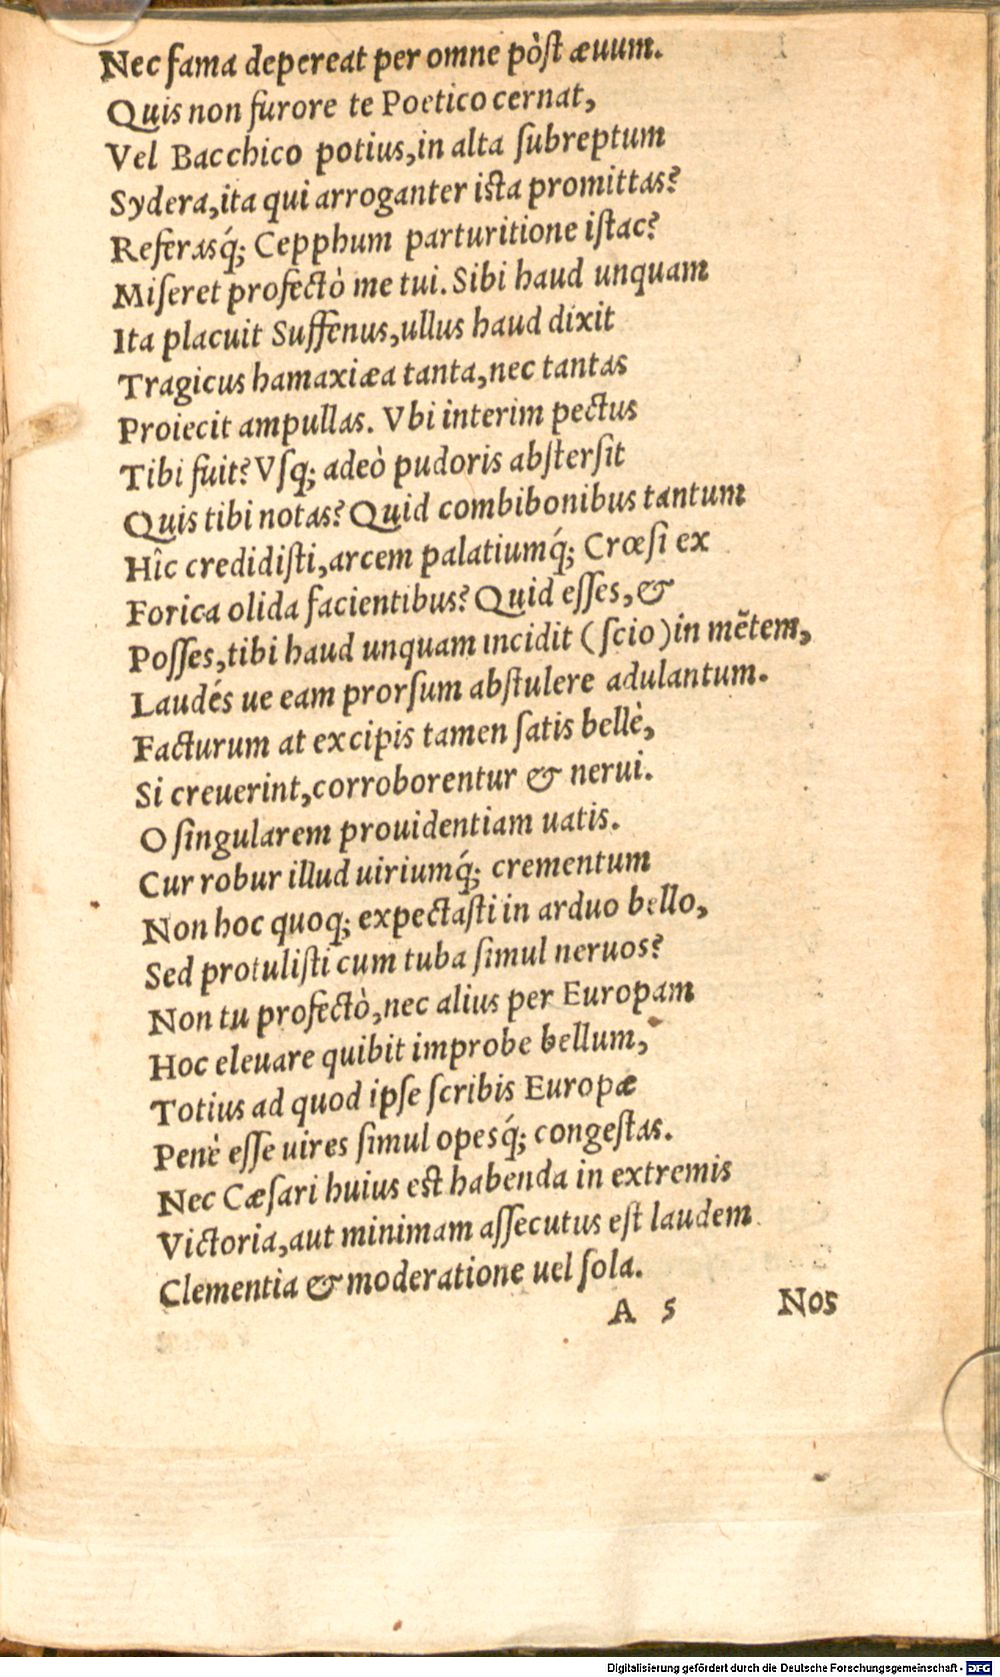 Nec fama depereat per omne pòſt æuum.
Quis non furore te Poetico cernat,
Vel Bacchico potius, in alta ſubreptum
Sydera, ita qui arroganter iſta promittas?
Referasq́; Cepphum parturitione iſtac?
Miſeret profectò me tui. Sibi haud unquam
Ita placuit Suffenus, ullus haud dixit
Tragicus hamaxiæa tanta, nec tantas
Proiecit ampullas. Vbi interim pectus
Tibi fuit? Vſq; adeò pudoris abſterſit
Quis tibi notas? Quid combibonibus tantum
Hîc credidiſti, arcem palatiumq́; Crœſi ex
Forica olida facientibus? Quid eſſes, &
Poſſes, tibi haud unquam incidit (ſcio) in mẽtem,
Laudés ue eam prorſum abſtulere adulantum.
Facturum at excipis tamen ſatis bellè,
Si creuerint, corroborentur & nerui.
O ſingularem prouidentiam uatis.
Cur robur illud uiriumq́; crementum
Non hoc quoq; expectaſti in arduo bello,
Sed protuliſti cum tuba ſimul neruos?
Non tu profectò, nec alius per Europam
Hoc eleuare quibit improbe bellum,
Totius ad quod ipſe ſcribis Europæ
Penè eſſe uires ſimul opesq́; congeſtas.
Nec Cæſari huius eſt habenda in extremis
Victoria, aut minimam aſſecutus eſt laudem
Clementia & moderatione uel ſola.
A 5 Nos
Digitalisierung gefördert durch die Deutsche Forschungsgemeinschaft - DFG